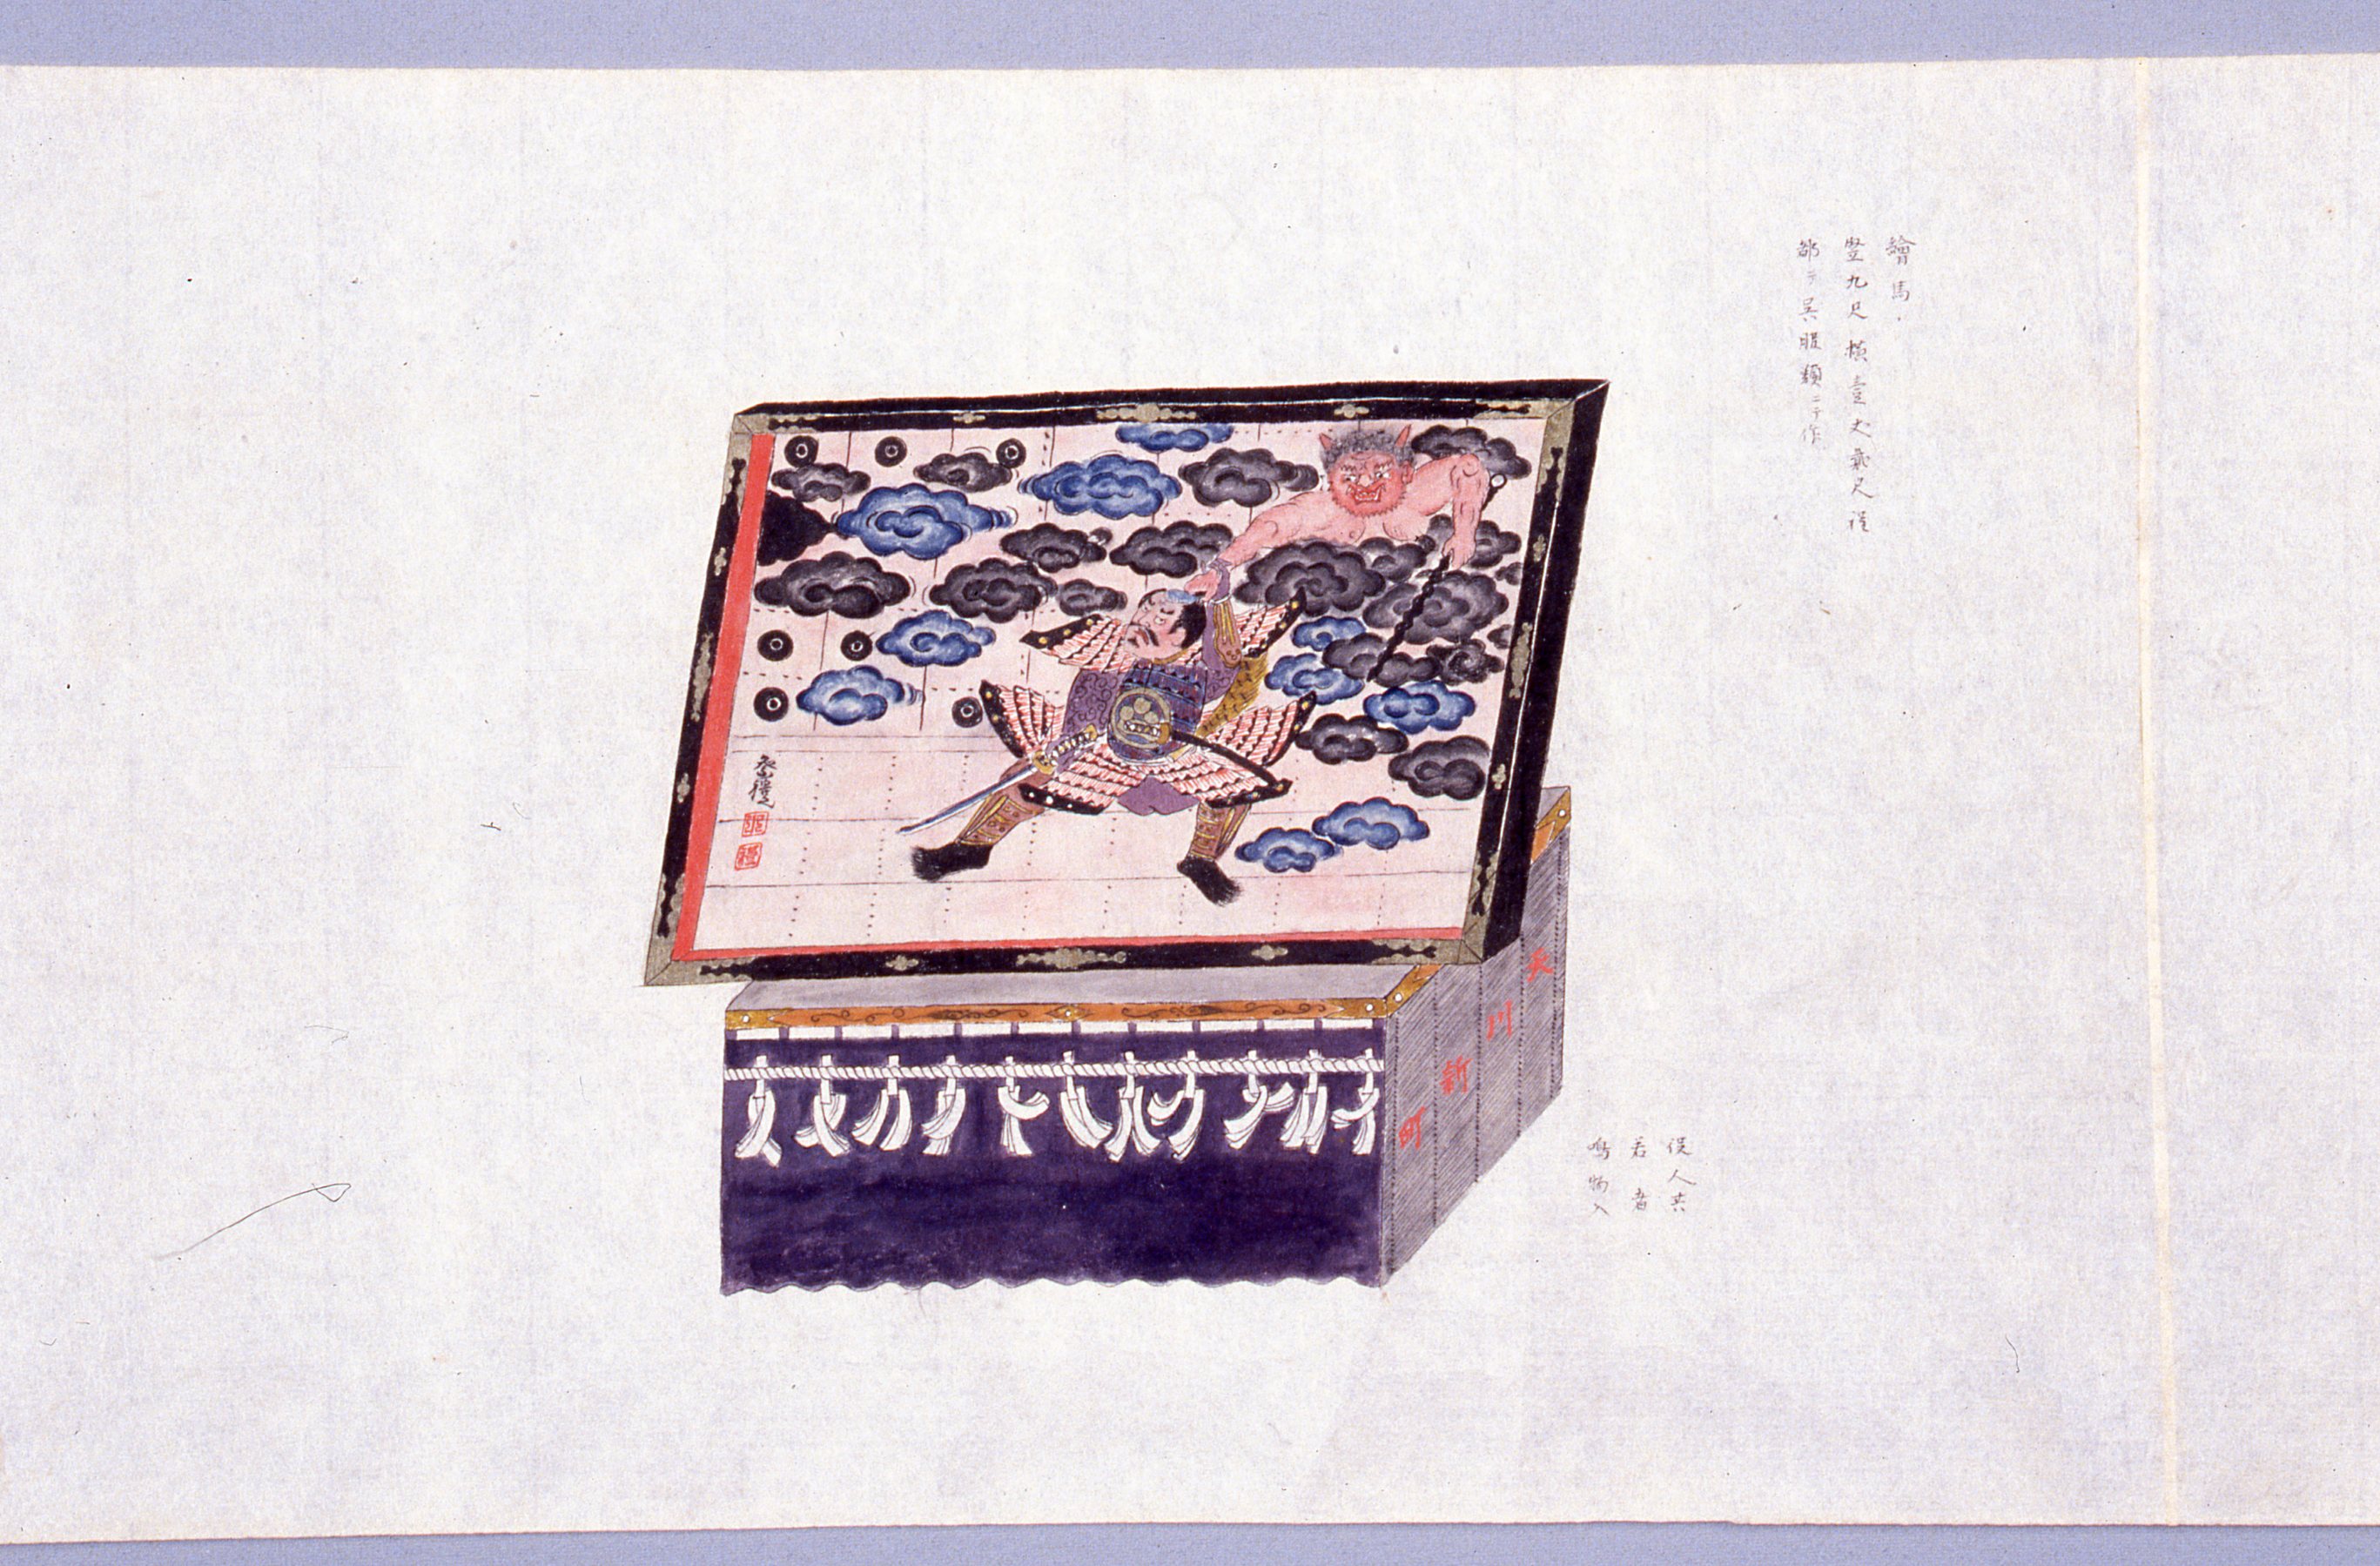 繪馬
竪九尺横壹丈貳尺程
都テ呉服類ニテ作
天川新町
役人共
若者
鳴物入